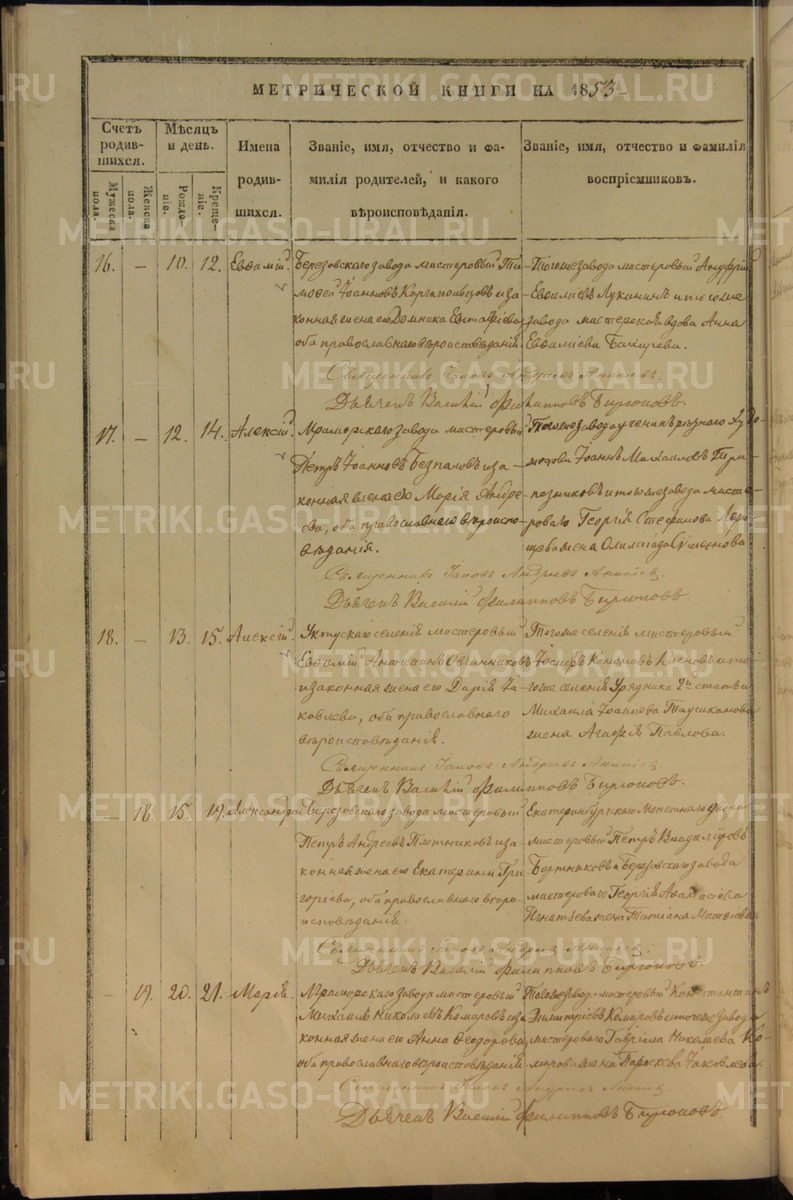 МЕТРИЧЕСКОЙ КНИГИ НА 1853
Счетъ родив-шихся.
Мужеска пола.
Женска пола.
Мѣсяцъ и день.
Рожде-ніе.
Креще-ніе.
Имена
родив-
шихся.
Званіе, имя, отчество и фа-
милія родителей, и какого
вѣроисповѣданія.
Званіе, имя, отчество и фамилія
воспріемниковъ.
16. — 10. 12. Евѳимій.
Березовскаго завода мастеровый Ти-
моѳей Іоанновъ Каргапольцовъ и за-
конная жена его Домника Евстафіева
оба православнаго вѣроисповѣданія.
Тогоже завода мастеровый Ануфрій
Евѳиміевъ Лукинъ и тогоже
завода мастерская вдова Анна
Евѳиміева
Священникъ Іаковъ Андреевъ
Дьячекъ Василій Филипповъ Бирюковъ.
17. — 12. 14. Алексій.
Мраморскаго завода мастеровый
Петръ Іоанновъ и за-
конная жена его Марія Андре-
ева, оба православнаго вѣроиспо-
вѣданія.
Тогоже завода ученикъ
Іоаннъ Михаиловъ
и тогоже завода масте-
роваго Георгія Стефанова
жена Олимпіада Симеонова.
Священникъ Іаковъ Андреевъ
Дьячекъ Василій Филипповъ Бирюковъ.
18. — 13. 15. Алексій.
Уктускаго селенія мастеровый
Евѳимій Овчинниковъ
и законная жена его Дарія Іа-
ковлева, оба православнаго
вѣроисповѣданія.
Тогоже селенія мастеровый
Іосифъ Кононовъ и то-
гоже селенія Урядника 2й статьи
Михаила Іоаннова
жена Агафія Павлова.
Священникъ Іаковъ Андреевъ
Дьячекъ Василій Филипповъ Бирюковъ.
— 18. 15. 19. Александра
Березовскаго завода мастеровый
Петръ Андреевъ Плотниковъ и за-
конная жена его Екатерина Гри-
горіева, оба православнаго вѣро-
исповѣданія.
Екатеринбургскаго Монетнаго двора
мастеровый Петръ Владиміровъ
Бортниковъ и Березовскаго завода
мастероваго Георгія Аѳанасіева
Игнатьева жена Татіана Матѳіева.
Священникъ Іаковъ Андреевъ
Дьячекъ Василій Филипповъ Бирюковъ.
— 19. 20. 21. Марія.
Мраморскаго завода мастеровый
Михаилъ Николаевъ Комаровъ и за-
конная жена его Анна Ѳеодорова,
оба православнаго вѣроисповѣданія.
Тогоже завода мастеровый Константинъ
Димитріевъ Комаровъ и тогоже завода
мастероваго Гавріила Николаева Ко-
марова жена Параскева Іаковлева.
Священникъ Іаковъ Андреевъ
Дьячекъ Василій Филипповъ Бирюковъ.
METRIKI.GASO-URAL.RU